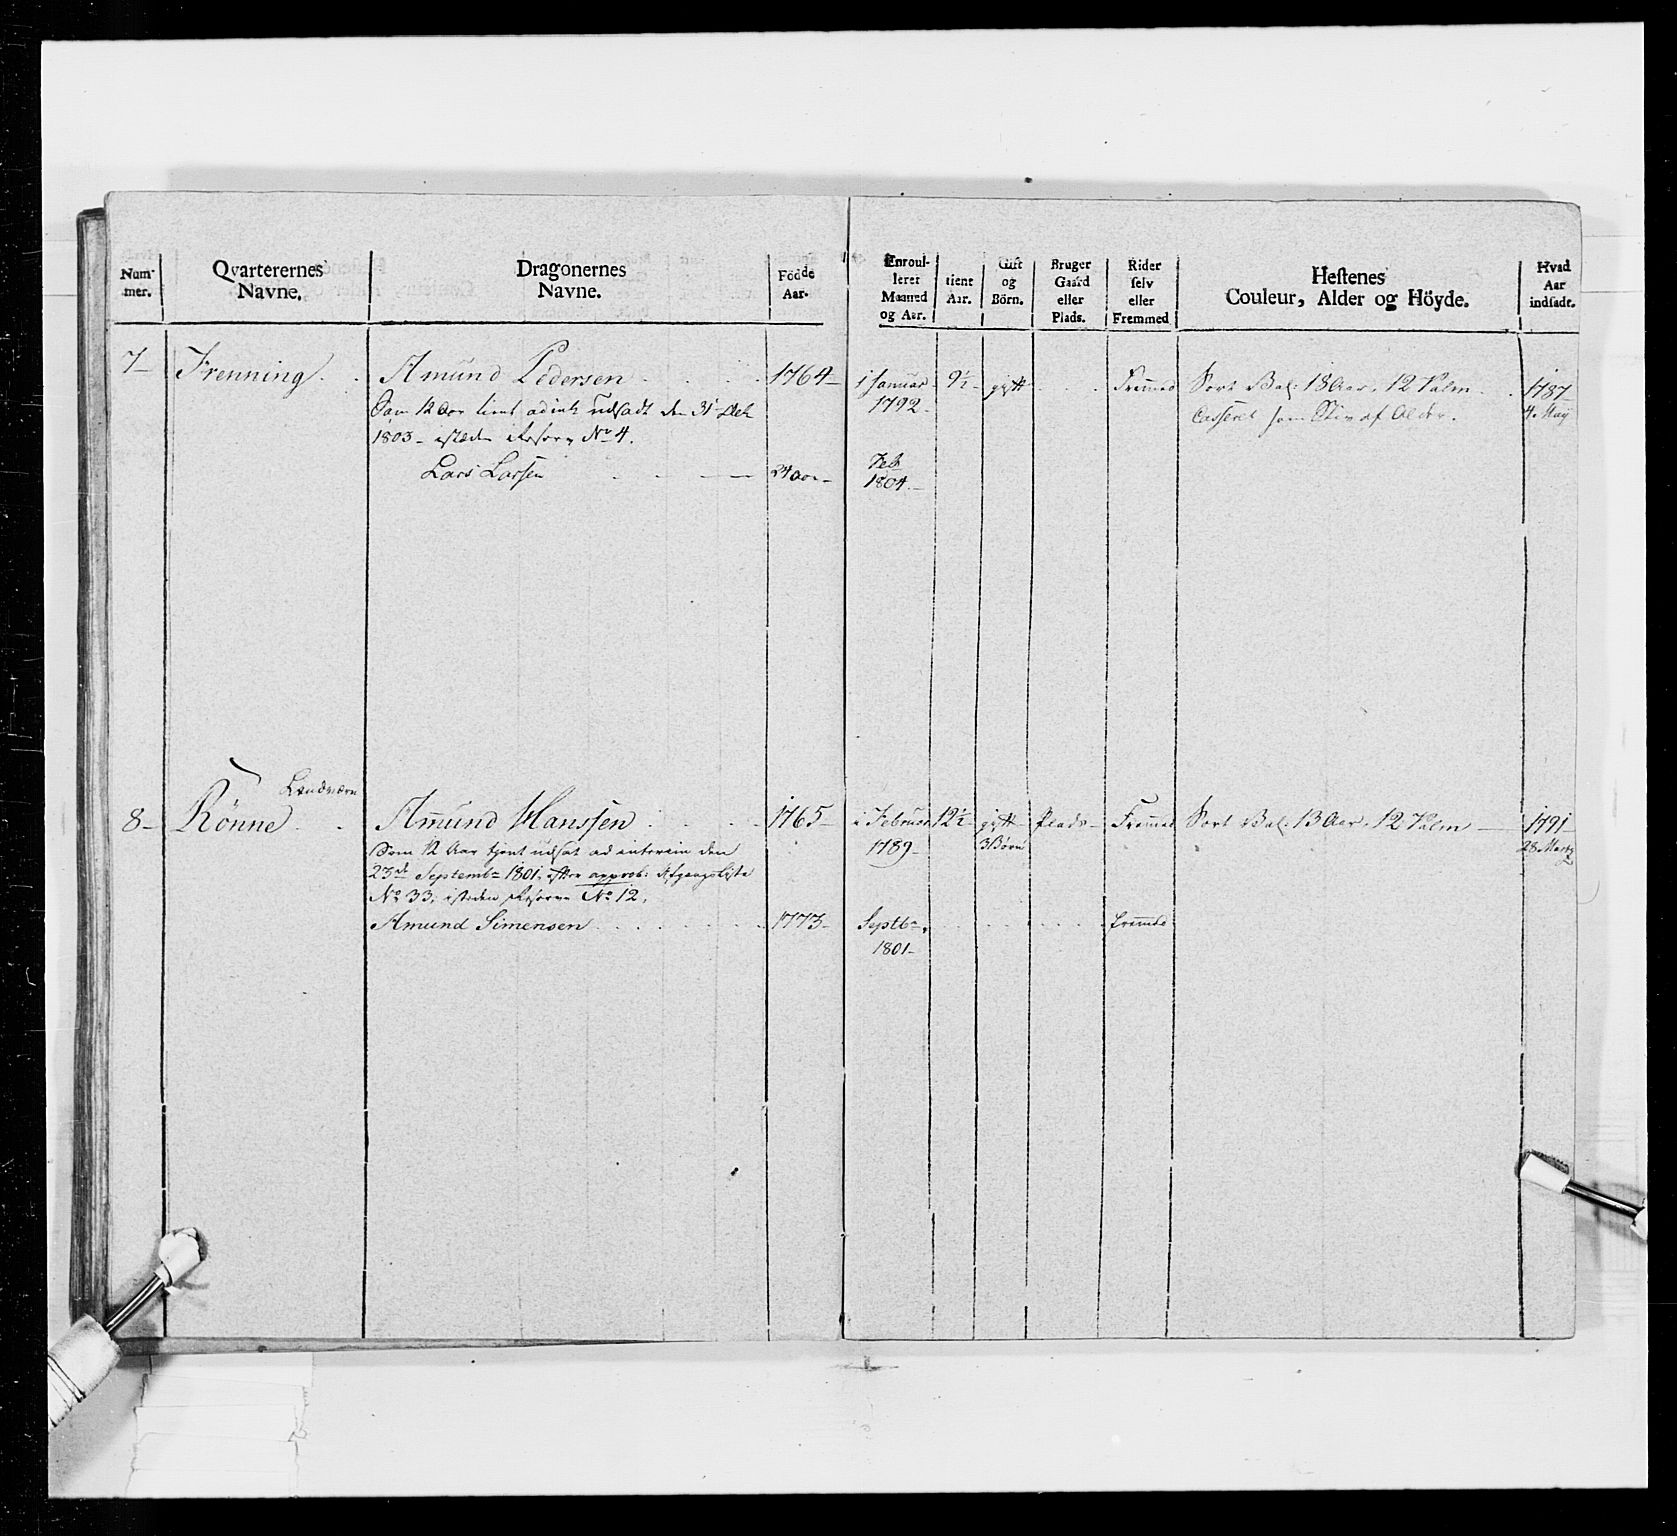 Num-
mer.
Qvarterernes
Navne.
Dragonernes
Navne.
Födde
Aar.
Enroul-
leret
Maaned
og Aar.
tient
Aar.
Gift
og
Börn.
Bruger
Gaard
eller
Plads.
Rider
selv
eller
Fremmed
Hestenes
Couleur, Alder og Höyde.
Hvad
Aar
indsadt.
7 Frenning Amund Pedersen 1764 i Januar 9½ gift Fremmed Sort 18 Aar. 12 Palm 1787
1792 Casseret som Stiv af Alder. 4 May
Som 12 Aar tient ad int. udsadt den 31 Dec
1803 istæden Reserv No 4.
Lars Larsen 24 Aar Feb
1804
Landværn
8 Rönne Amund Hanssen 1765 i Februar 12½ gift Plads Fremmed Sort 13 Aar. 12 Palm 1791
1789 3 Börn 28 Martz
Som 12 Aar tjent udsat ad interim den
23de Septembr 1801 efter approb: Afgangsliste
No 33, isteden Reserve No 12.
Amund Simensen 1773 Septbr Fremmed
1801